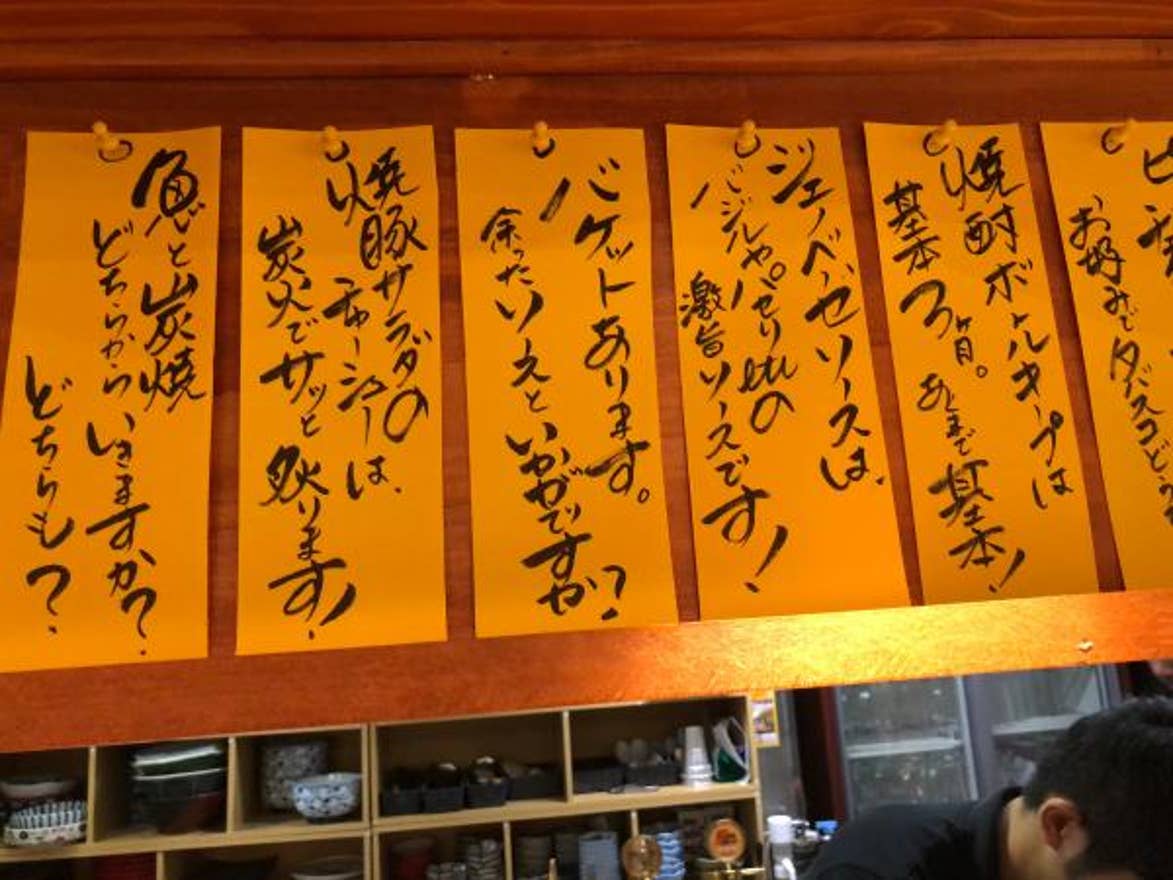 お好みでタバスコ
焼酎ボトルキープは
基本3ヶ月。あくまで基本!
ジェノベーゼソースは、
バジルやパセリetcの
激旨ソースです!
バケットあります。
余ったソースといかがですか?
焼豚サラダの
チャーシューは、
炭火でサッと炙ります!
魚と炭焼
どちらからいきますか?
どちらも?